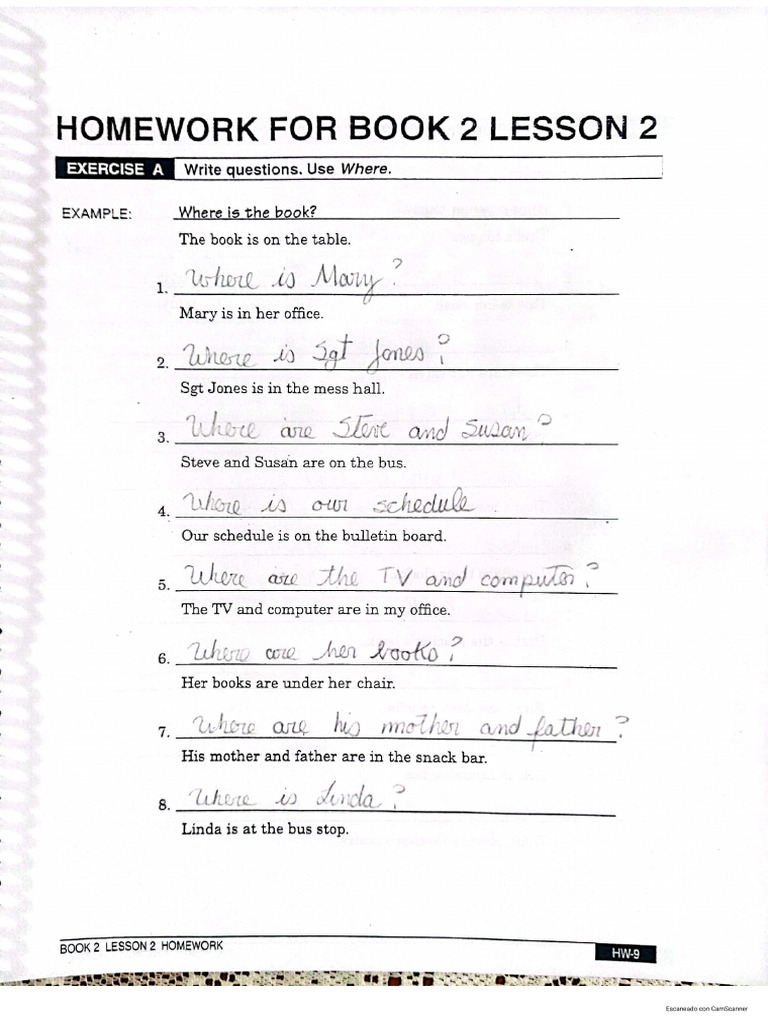 HOMEWORK FOR BOOK 2 LESSON 2
EXERCISE A Write questions. Use Where.
EXAMPLE: Where is the book?
The book is on the table.
1. Where is Mary?
Mary is in her office.
2. Where is Sgt Jones?
Sgt Jones is in the mess hall.
3. Where are Steve and Susan?
Steve and Susan are on the bus.
4. Where is our schedule
Our schedule is on the bulletin board.
5. Where are the TV and computer?
The TV and computer are in my office.
6. Where are her books?
Her books are under her chair.
7. Where are his mother and father?
His mother and father are in the snack bar.
8. Where is Linda?
Linda is at the bus stop.
BOOK 2 LESSON 2 HOMEWORK
HW-9
Escaneado con CamScanner